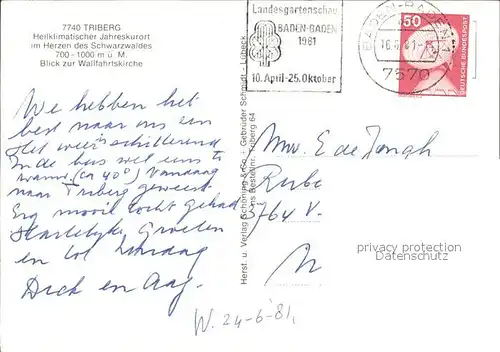 7740 TRIBERG
Heilklimatischer Jahreskurort
im Herzen des Schwarzwaldes
700 – 1000 m ü. M.
Blick zur Wallfahrtskirche
Landesgartenschau
BADEN-BADEN
1981
10. April-25. Oktober
BADEN-BADEN
7570
50
DEUTSCHE BUNDESPOST
Herst. u. Verlag Schöning & Co · Gebrüder Schmidt · Lübeck
Bestellnr. Triberg 64
We hebben het
best naar ons zin
Het weer is schitterend
In de bus wel eens te
warm (ca 40°) Vandaag
naar Triberg geweest
Erg mooie tocht gehad
Hartelijke Groeten
en tot
Dick en
Mw. E de Jongh
3764 V.
privacy protection
watermark on ansichtskarten-lexikon.de
W. 24-6-81,